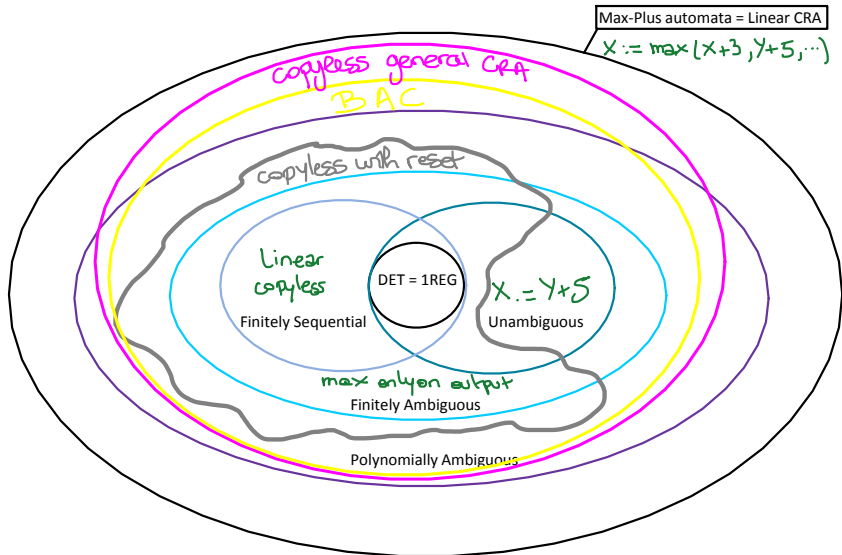 Max-Plus automata = Linear CRA
X := max(X+3, Y+5, ...)
copyless general CRA
BAC
copyless with reset
Linear
copyless
DET = 1REG
X := Y+5
Finitely Sequential
Unambiguous
max only on output
Finitely Ambiguous
Polynomially Ambiguous